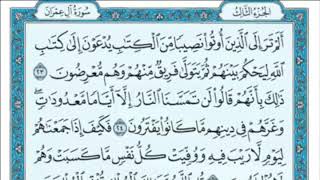 سُورَةُ آلِ عِمْرَانَ الجُزْءُ الثَّالِثُ
أَلَمْ تَرَ إِلَى ٱلَّذِينَ أُوتُوا۟ نَصِيبًا مِّنَ ٱلْكِتَٰبِ يُدْعَوْنَ إِلَىٰ كِتَٰبِ
ٱللَّهِ لِيَحْكُمَ بَيْنَهُمْ ثُمَّ يَتَوَلَّىٰ فَرِيقٌ مِّنْهُمْ وَهُم مُّعْرِضُونَ ٢٣
ذَٰلِكَ بِأَنَّهُمْ قَالُوا۟ لَن تَمَسَّنَا ٱلنَّارُ إِلَّآ أَيَّامًا مَّعْدُودَٰتٍ ۖ
وَغَرَّهُمْ فِى دِينِهِم مَّا كَانُوا۟ يَفْتَرُونَ ٢٤ فَكَيْفَ إِذَا جَمَعْنَٰهُمْ
لِيَوْمٍ لَّا رَيْبَ فِيهِ وَوُفِّيَتْ كُلُّ نَفْسٍ مَّا كَسَبَتْ وَهُمْ